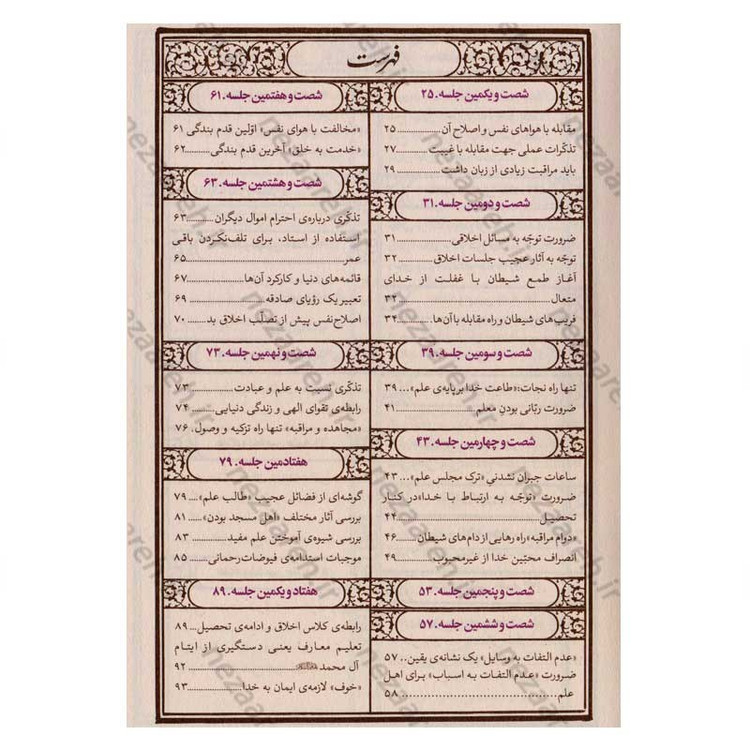 فهرست
شصت و یکمین جلسه. ۲۵
مقابله با هواهای نفس و اصلاح آن ............... ۲۵
تذکّرات عملی جهت مقابله با غیبت ........ ۲۷
باید مراقبت زیادی از زبان داشت ............... ۲۹
شصت و دومین جلسه. ۳۱
ضرورت توجّه به مسائل اخلاقی ............... ۳۱
توجّه به آثار عجیب جلسات اخلاق ........ ۳۲
آغاز طمع شیطان با غفلت از خدای
متعال ............... ۳۳
فریب‌های شیطان و راه مقابله با آن‌ها ........ ۳۴
شصت و سومین جلسه. ۳۹
تنها راه نجات: «طاعت خدا بر پایه‌ی علم» ... ۳۹
ضرورت ربّانی بودنِ معلم ............... ۴۱
شصت و چهارمین جلسه. ۴۳
ساعات جبران نشدنیِ «ترک مجلس علم» ... ۴۳
ضرورت «توجّه به ارتباط با خدا» در کنار
تحصیل ............... ۴۴
«دوام مراقبه» راه رهایی از دام‌های شیطان ..... ۴۶
انصراف محبّین خدا از غیر محبوب ........ ۴۹
شصت و پنجمین جلسه. ۵۳
شصت و ششمین جلسه. ۵۷
«عدم التفات به وسایل» یک نشانه‌ی یقین .. ۵۷
ضرورت «عدم التفات به اسباب» برای اهل
علم ............... ۵۸
شصت و هفتمین جلسه. ۶۱
«مخالفت با هوای نفس» اوّلین قدم بندگی ۶۱
«خدمت به خلق» آخرین قدم بندگی ........ ۶۲
شصت و هشتمین جلسه. ۶۳
تذکّری درباره‌ی احترام اموال دیگران ........ ۶۳
استفاده از استاد، برای تلف‌نکردن باقی
عمر ............... ۶۵
قائمه‌های دنیا و کارکرد آن‌ها ............... ۶۷
تعبیر یک رؤیای صادقه ............... ۶۹
اصلاح نفس پیش از تصلّب اخلاق بد ..... ۷۰
شصت و نهمین جلسه. ۷۳
تذکّری نسبت به علم و عبادت ............... ۷۳
رابطه‌ی تقوای الهی و زندگی دنیایی ........ ۷۴
«مجاهده و مراقبه» تنها راه تزکیه و وصول . ۷۶
هفتادمین جلسه. ۷۹
گوشه‌ای از فضائل عجیب «طالب علم» .... ۷۹
بررسی آثار مختلف «اهل مسجد بودن» ..... ۸۱
بررسی شیوه‌ی آموختن علم مفید ........ ۸۳
موجبات استدامه‌ی فیوضات رحمانی ..... ۸۵
هفتاد و یکمین جلسه. ۸۹
رابطه‌ی کلاس اخلاق و ادامه‌ی تحصیل .. ۸۹
تعلیم معارف یعنی دستگیری از ایتام
آل محمد ............... ۹۲
«خوف» لازمه‌ی ایمان به خدا ............... ۹۳
nezaareh.ir